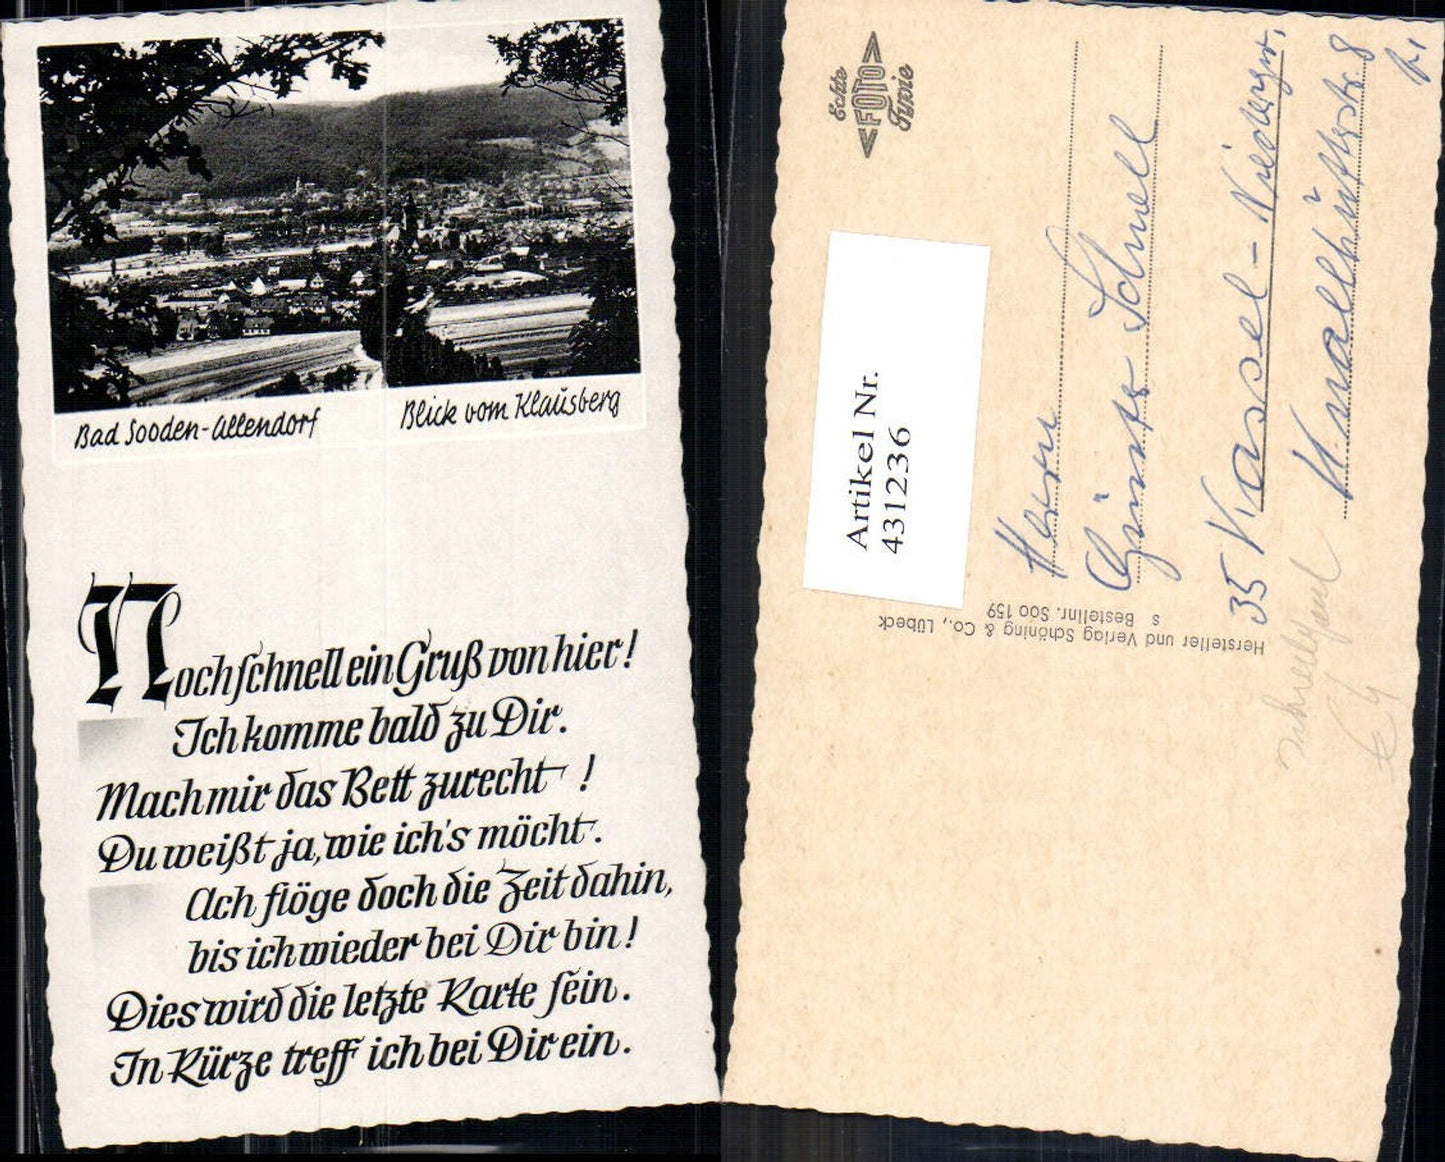 Bad Sooden-Allendorf
Blick vom Klausberg
Noch schnell ein Gruß von hier!
Ich komme bald zu Dir.
Mach mir das Bett zurecht!
Du weißt ja, wie ich's möcht.
Ach flöge doch die Zeit dahin,
bis ich wieder bei Dir bin!
Dies wird die letzte Karte sein.
In Kürze treff ich bei Dir ein.
Echte
<FOTO>
Artikel Nr.
431236
Hersteller und Verlag Schöning & Co., Lübeck
s Bestellnr. Soo 159
Herrn
Günter Schnell
35 Kassel-Niederzw.
Knallhütterstr. 8